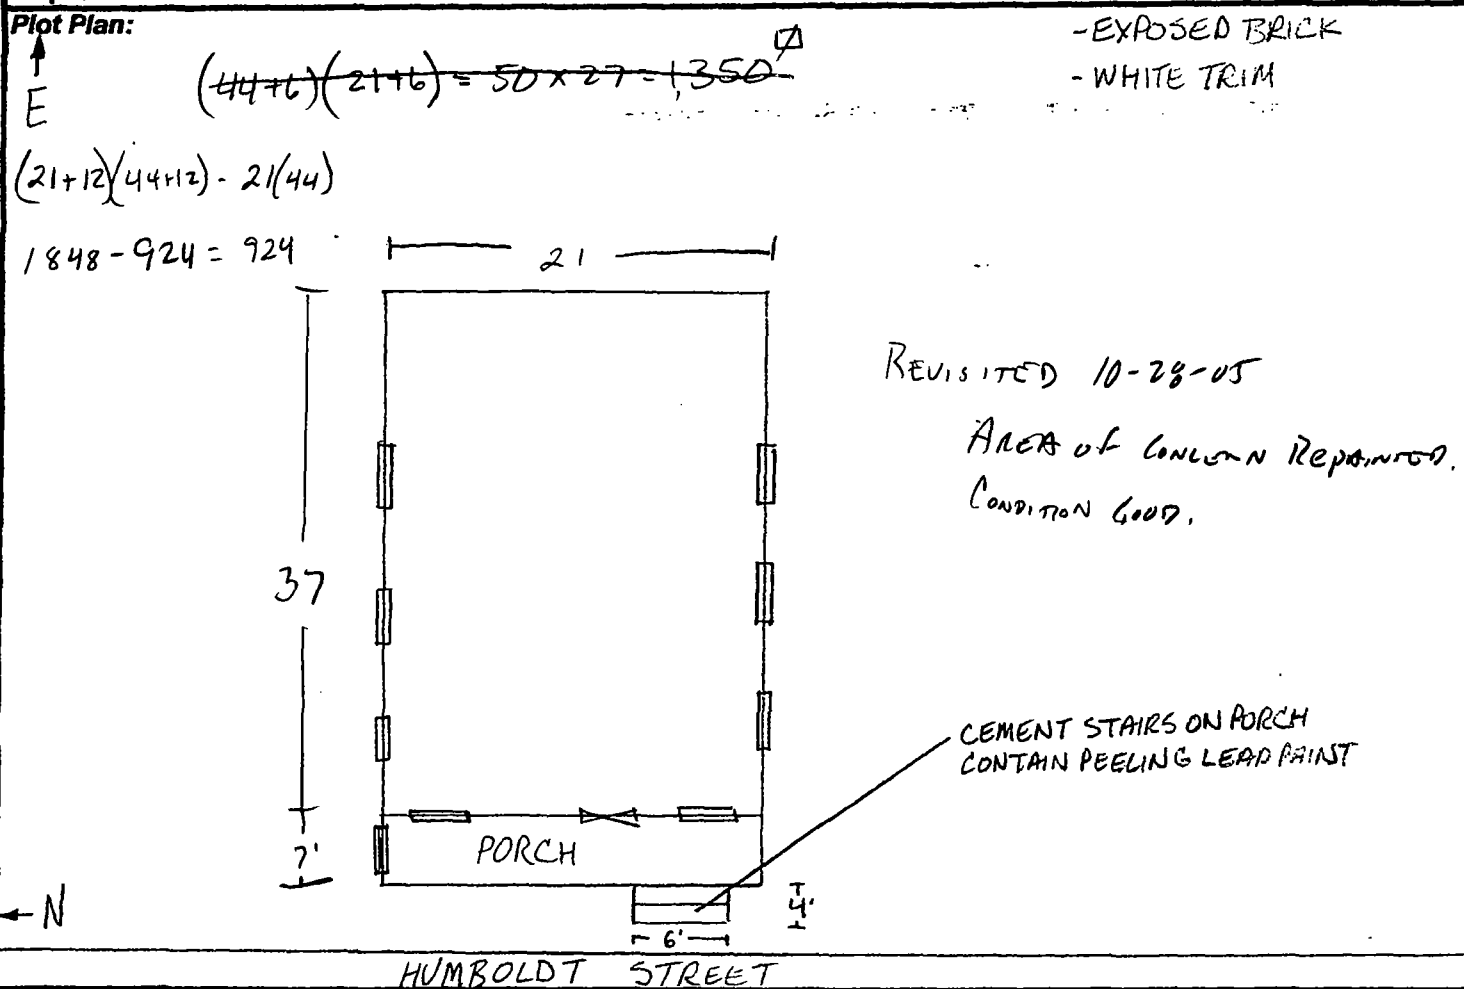 Plot Plan:
(44+6)(21+6) = 50 x 27 = 1,350
- EXPOSED BRICK
- WHITE TRIM
E
(21+12)(44+12) - 21(44)
1848 - 924 = 924
21
REVISITED 10-28-05
AREA OF CONCERN REPAINTED.
CONDITION GOOD.
37
CEMENT STAIRS ON PORCH
CONTAIN PEELING LEAD PAINT
PORCH
7'
N
4'
6'
HUMBOLDT STREET